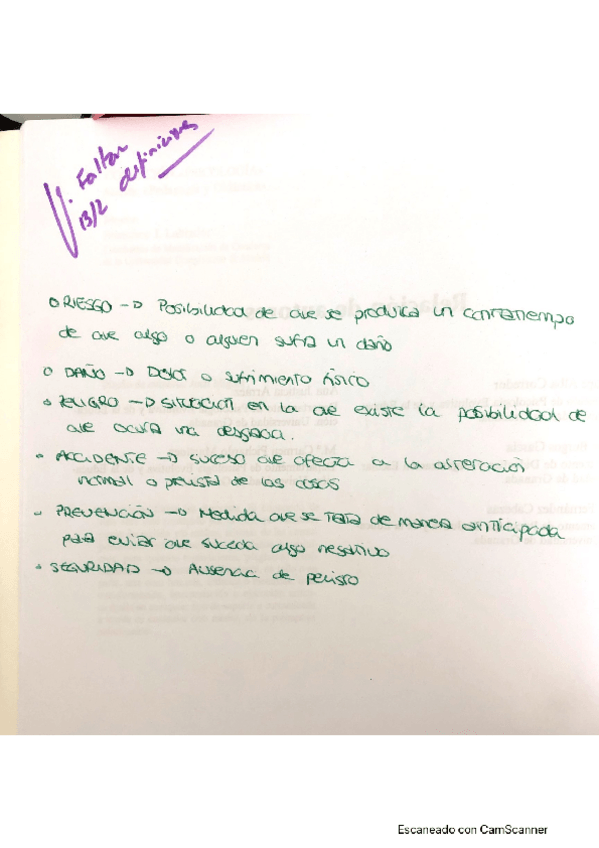 Faltan definiciones
13/2
RIESGO → Posibilidad de que se produzca un contratiempo
de que algo o alguien sufra un daño
DAÑO → Dolor o sufrimiento físico
PELIGRO → SITUACIÓN en la que existe la posibilidad de
que ocurra una desgracia.
ACCIDENTE → suceso que afecta a la alteración
normal o prevista de las cosas
PREVENCIÓN → Medida que se toma de manera anticipada
para evitar que suceda algo negativo
SEGURIDAD → Ausencia de peligro
Escaneado con CamScanner